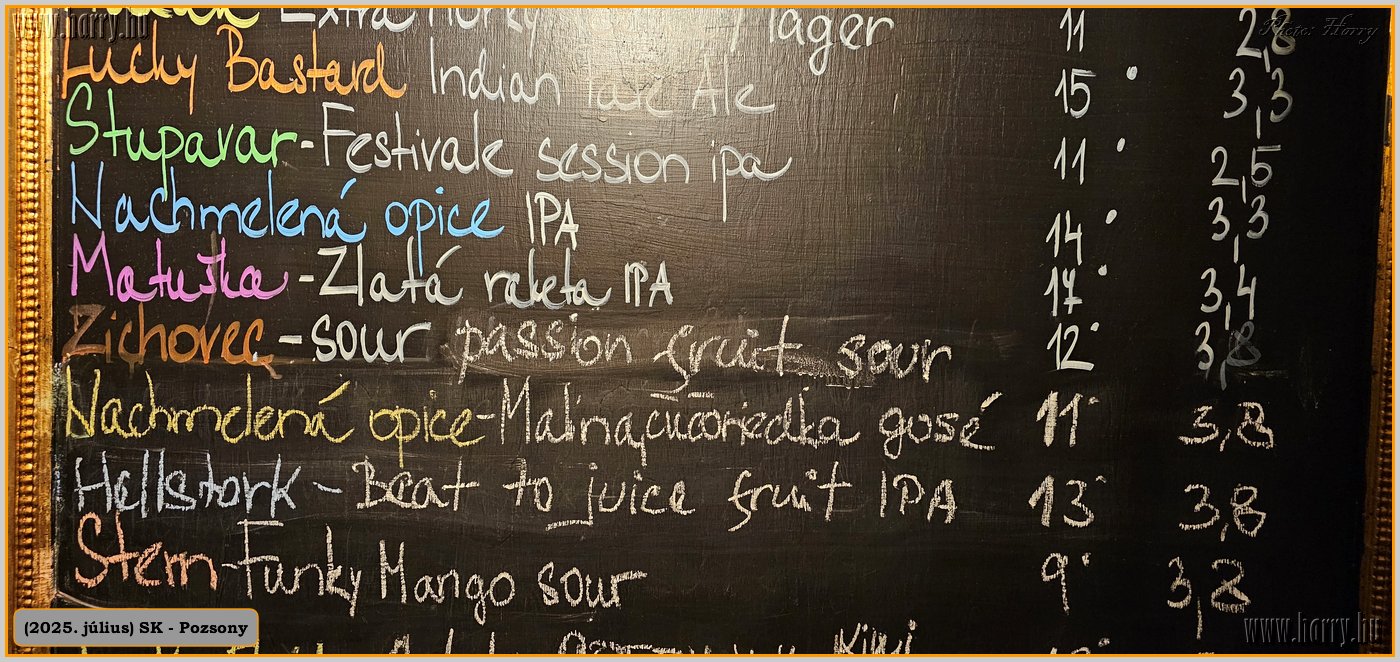 www.harry.hu
Extra Horký lager 11 2,8
Photo: Harry
Lucky Bastard Indian Pale Ale 15° 3,3
Stupavar-Festivale session ipa 11° 2,5
Nachmelená opice IPA 14° 3,3
Matuška-Zlatá raketa IPA 17° 3,4
Zichovec-sour passion fruit sour 12° 3,8
Nachmelená opice-Malina,čučoriedka gosé 11° 3,8
Hellstork-Beat to juice fruit IPA 13° 3,8
Stern-Funky Mango sour 9° 3,8
(2025. július) SK - Pozsony
Kiwi
www.harry.hu